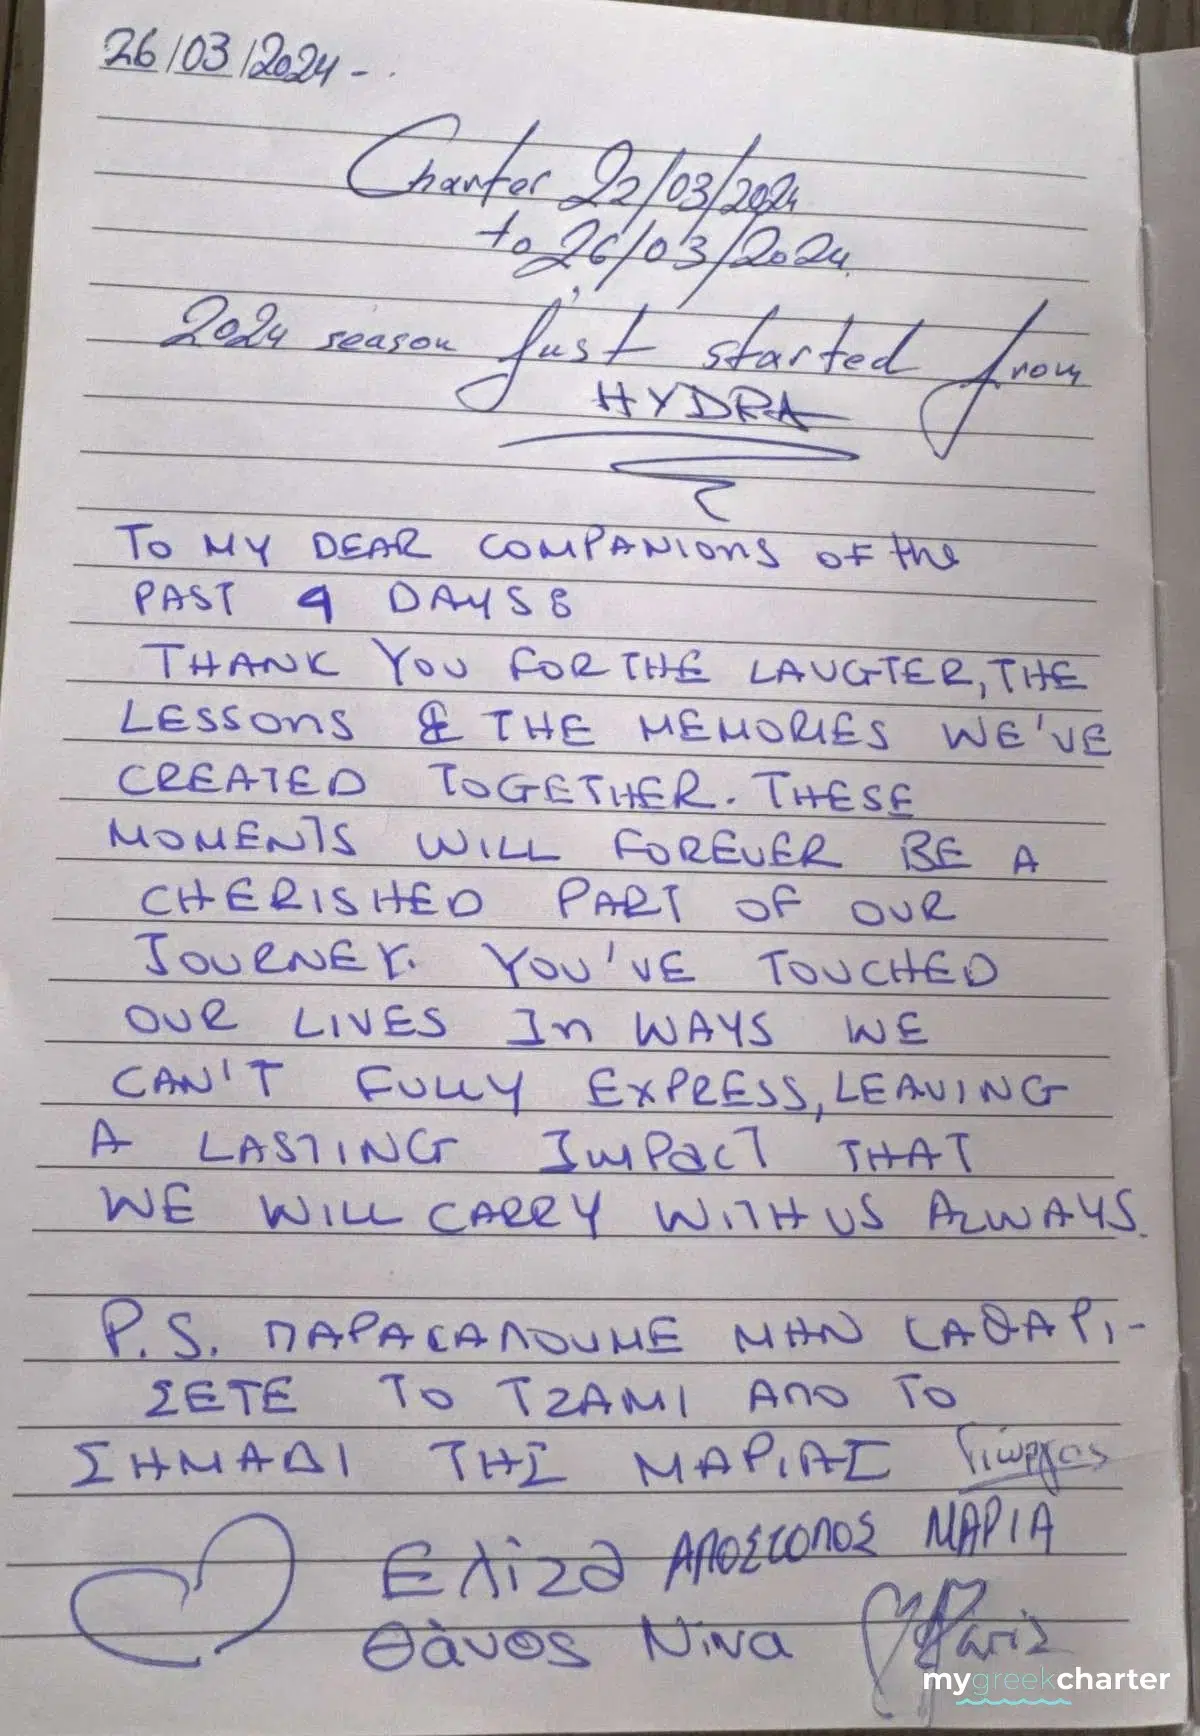 26/03/2024 -
Charter 22/03/2024
to 26/03/2024
2024 season just started from
HYDRA
TO MY DEAR COMPANIONS OF the
PAST 4 DAYS:
THANK YOU FOR THE LAUGTER, THE
LESSONS & THE MEMORIES WE'VE
CREATED TOGETHER. THESE
MOMENTS WILL FOREVER BE A
CHERISHED PART OF OUR
JOURNEY. YOU'VE TOUCHED
OUR LIVES IN WAYS WE
CAN'T FULLY EXPRESS, LEAVING
A LASTING IMPACT THAT
WE WILL CARRY WITH US ALWAYS.
P.S. ΠΑΡΑΚΑΛΟΥΜΕ ΜΗΝ ΚΑΘΑΡΙ-
ΣΕΤΕ ΤΟ ΤΖΑΜΙ ΑΠΟ ΤΟ
ΣΗΜΑΔΙ ΤΗΣ ΜΑΡΙΑΣ Γιώργος
Ελίζα ΑΠΟΣΤΟΛΟΣ ΜΑΡΙΑ
Θάνος Νίνα
mygreekcharter